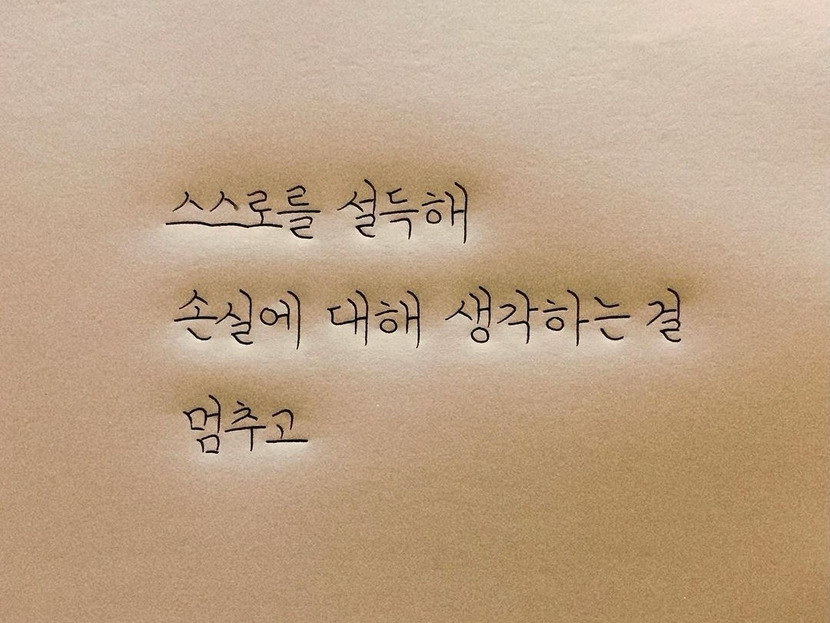 스스로를 설득해
손실에 대해 생각하는 걸
멈추고